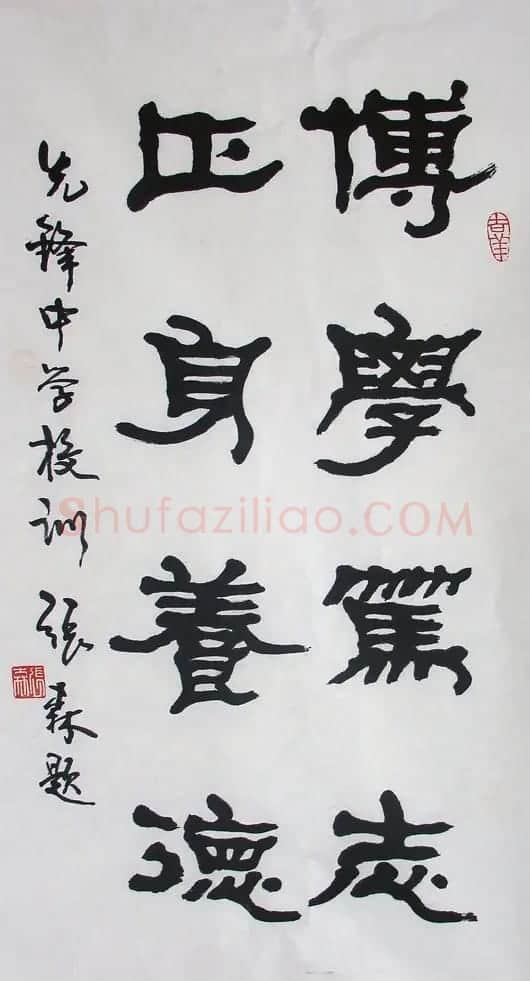 博學篤志
正身養德
先鋒中学校训 張森題
吉羊
張森
Shufaziliao.COM